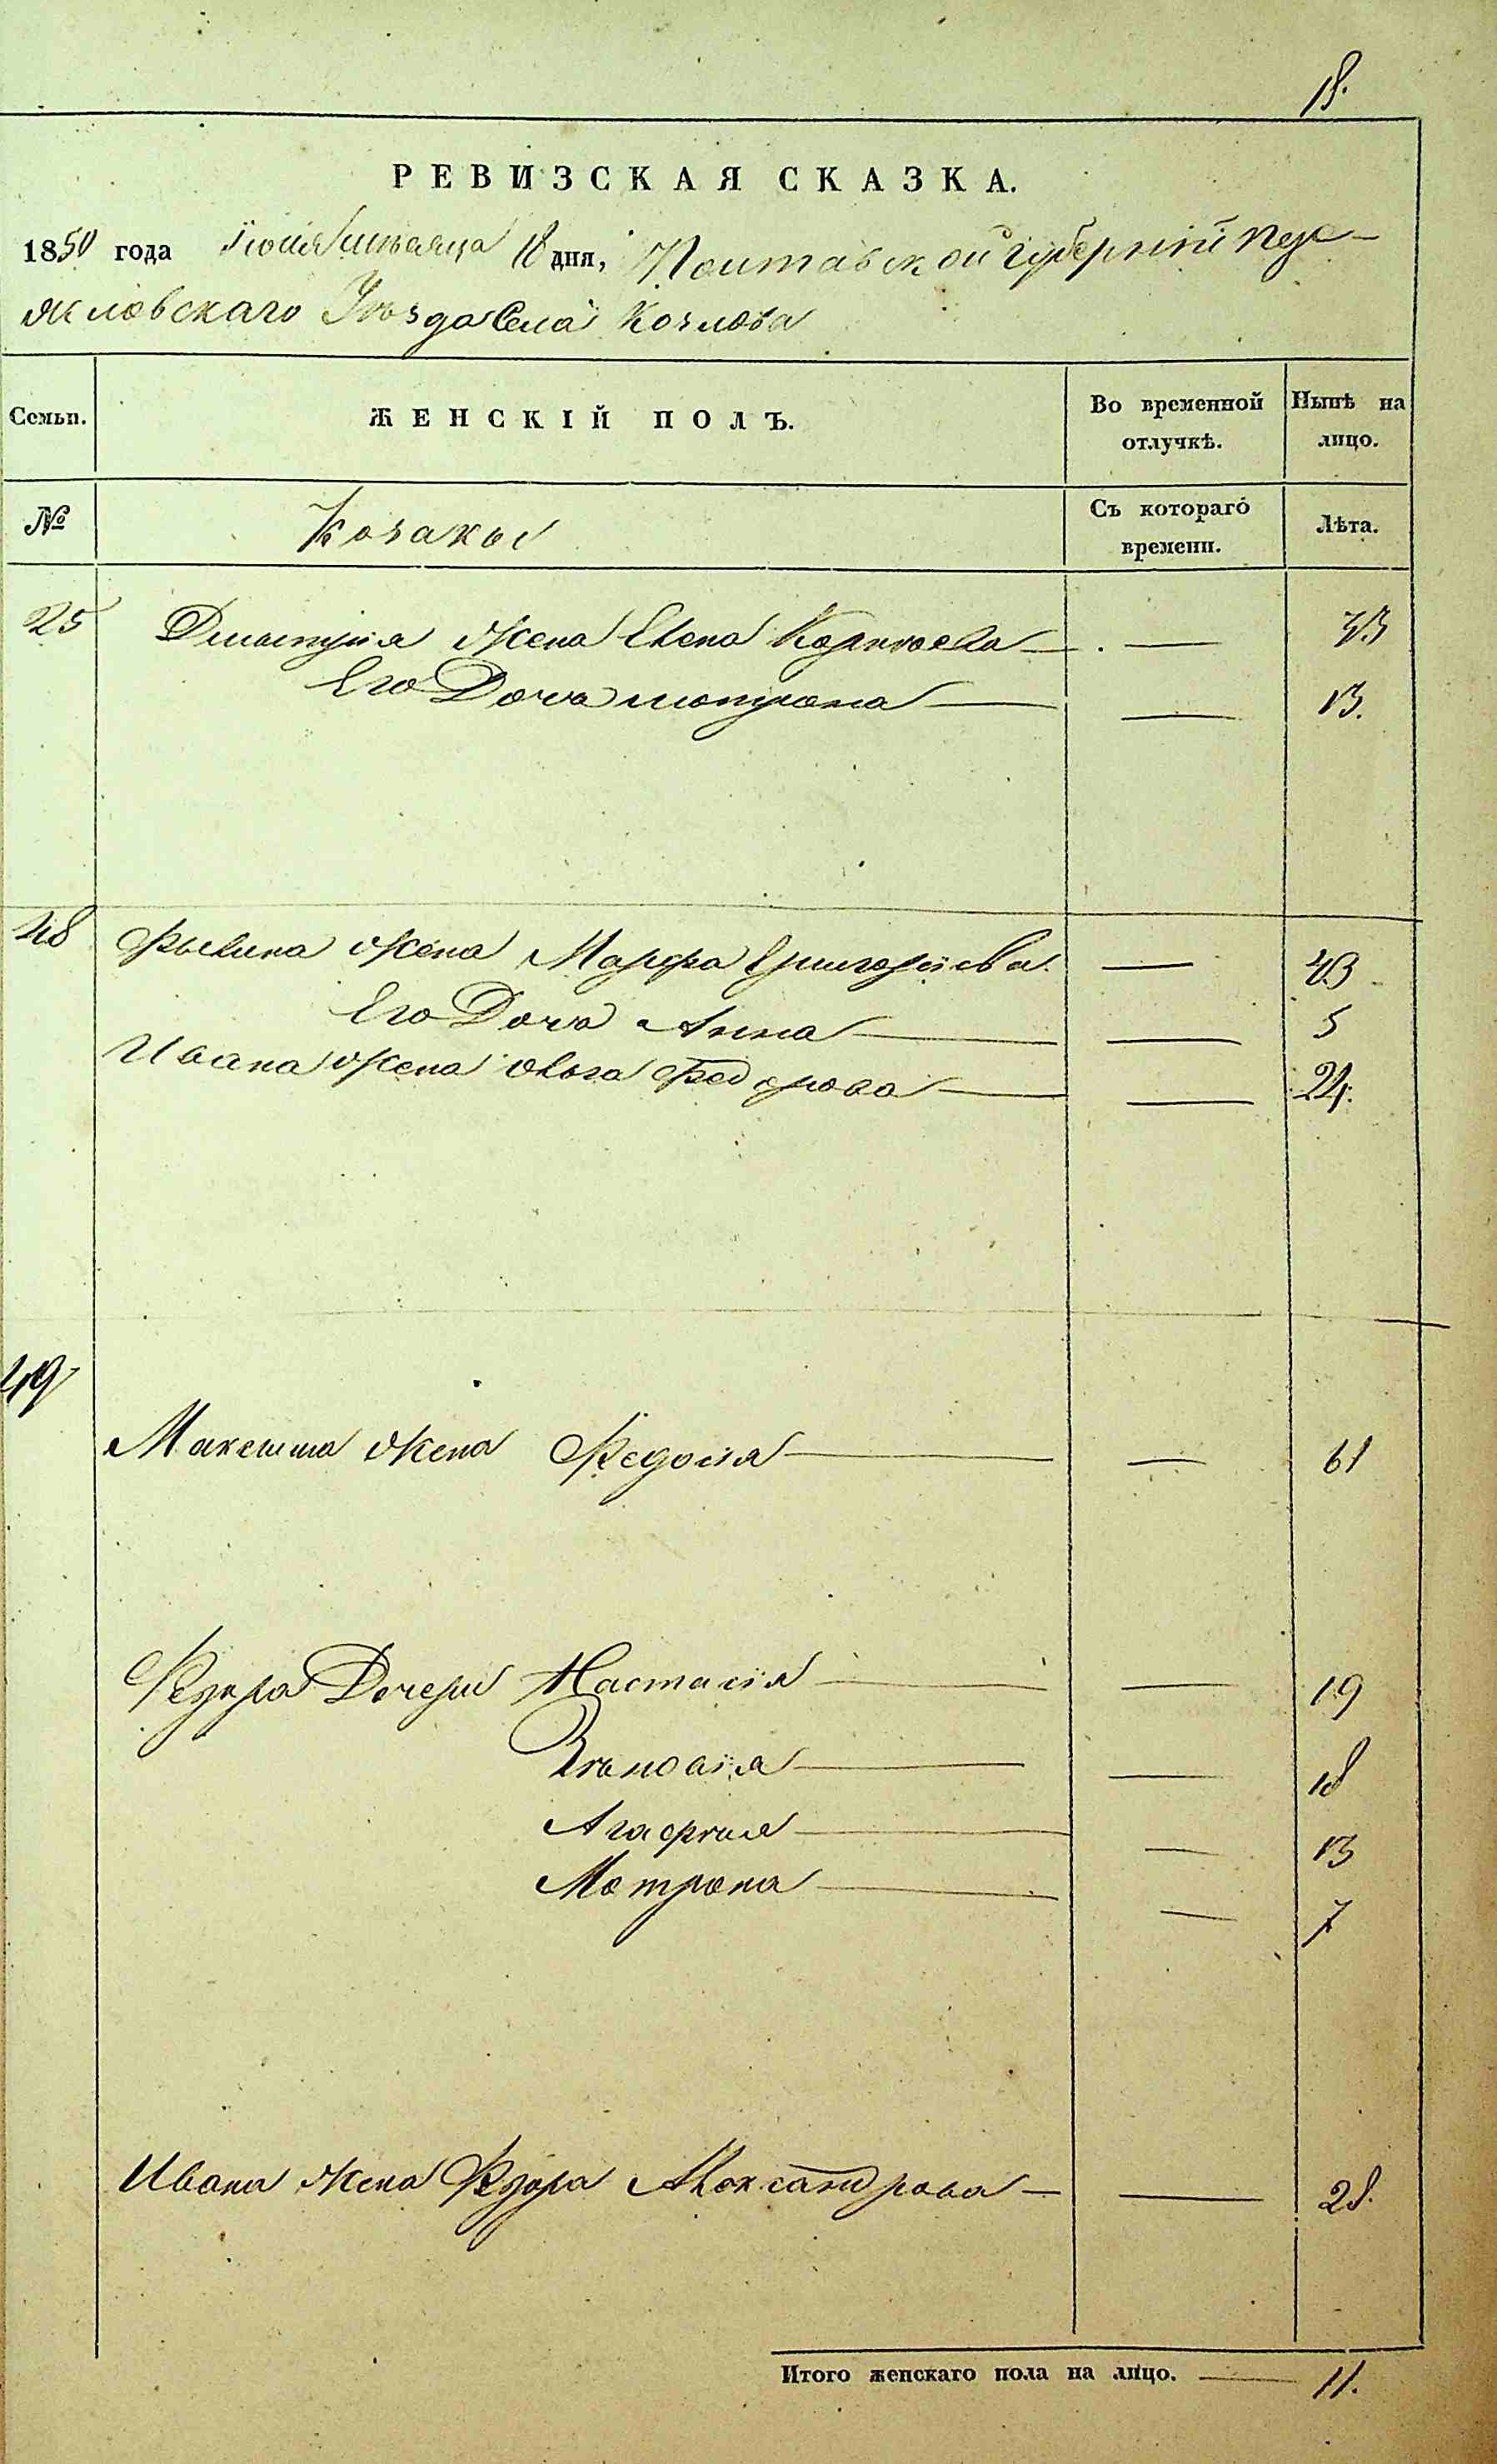 18.
РЕВИЗСКАЯ СКАЗКА.
1850 года Іюля мѣсяца 18 дня, Полтавской губерніи Пере-
яславскаго Уѣзда Села Козлова
Семьи.
ЖЕНСКІЙ ПОЛЪ.
Во временной отлучкѣ.
Нынѣ на лицо.
№
Козаковъ
Съ котораго времени.
Лѣта.
25 Дмытрія жена Елена — 43
Его Дочь мотрона — 13.
48 жена Марфа Григоріева — 43
Его Дочь Анна — 5
Ивана жена Ольга Федорова — 24.
49
Максима жена Федосія — 61
Федора Дочери Настасія — 19
Зѣновія — 18
Агафія — 13
Мотрона — 7
Ивана жена Александрова — 28.
Итого женскаго пола на лицо. — 11.